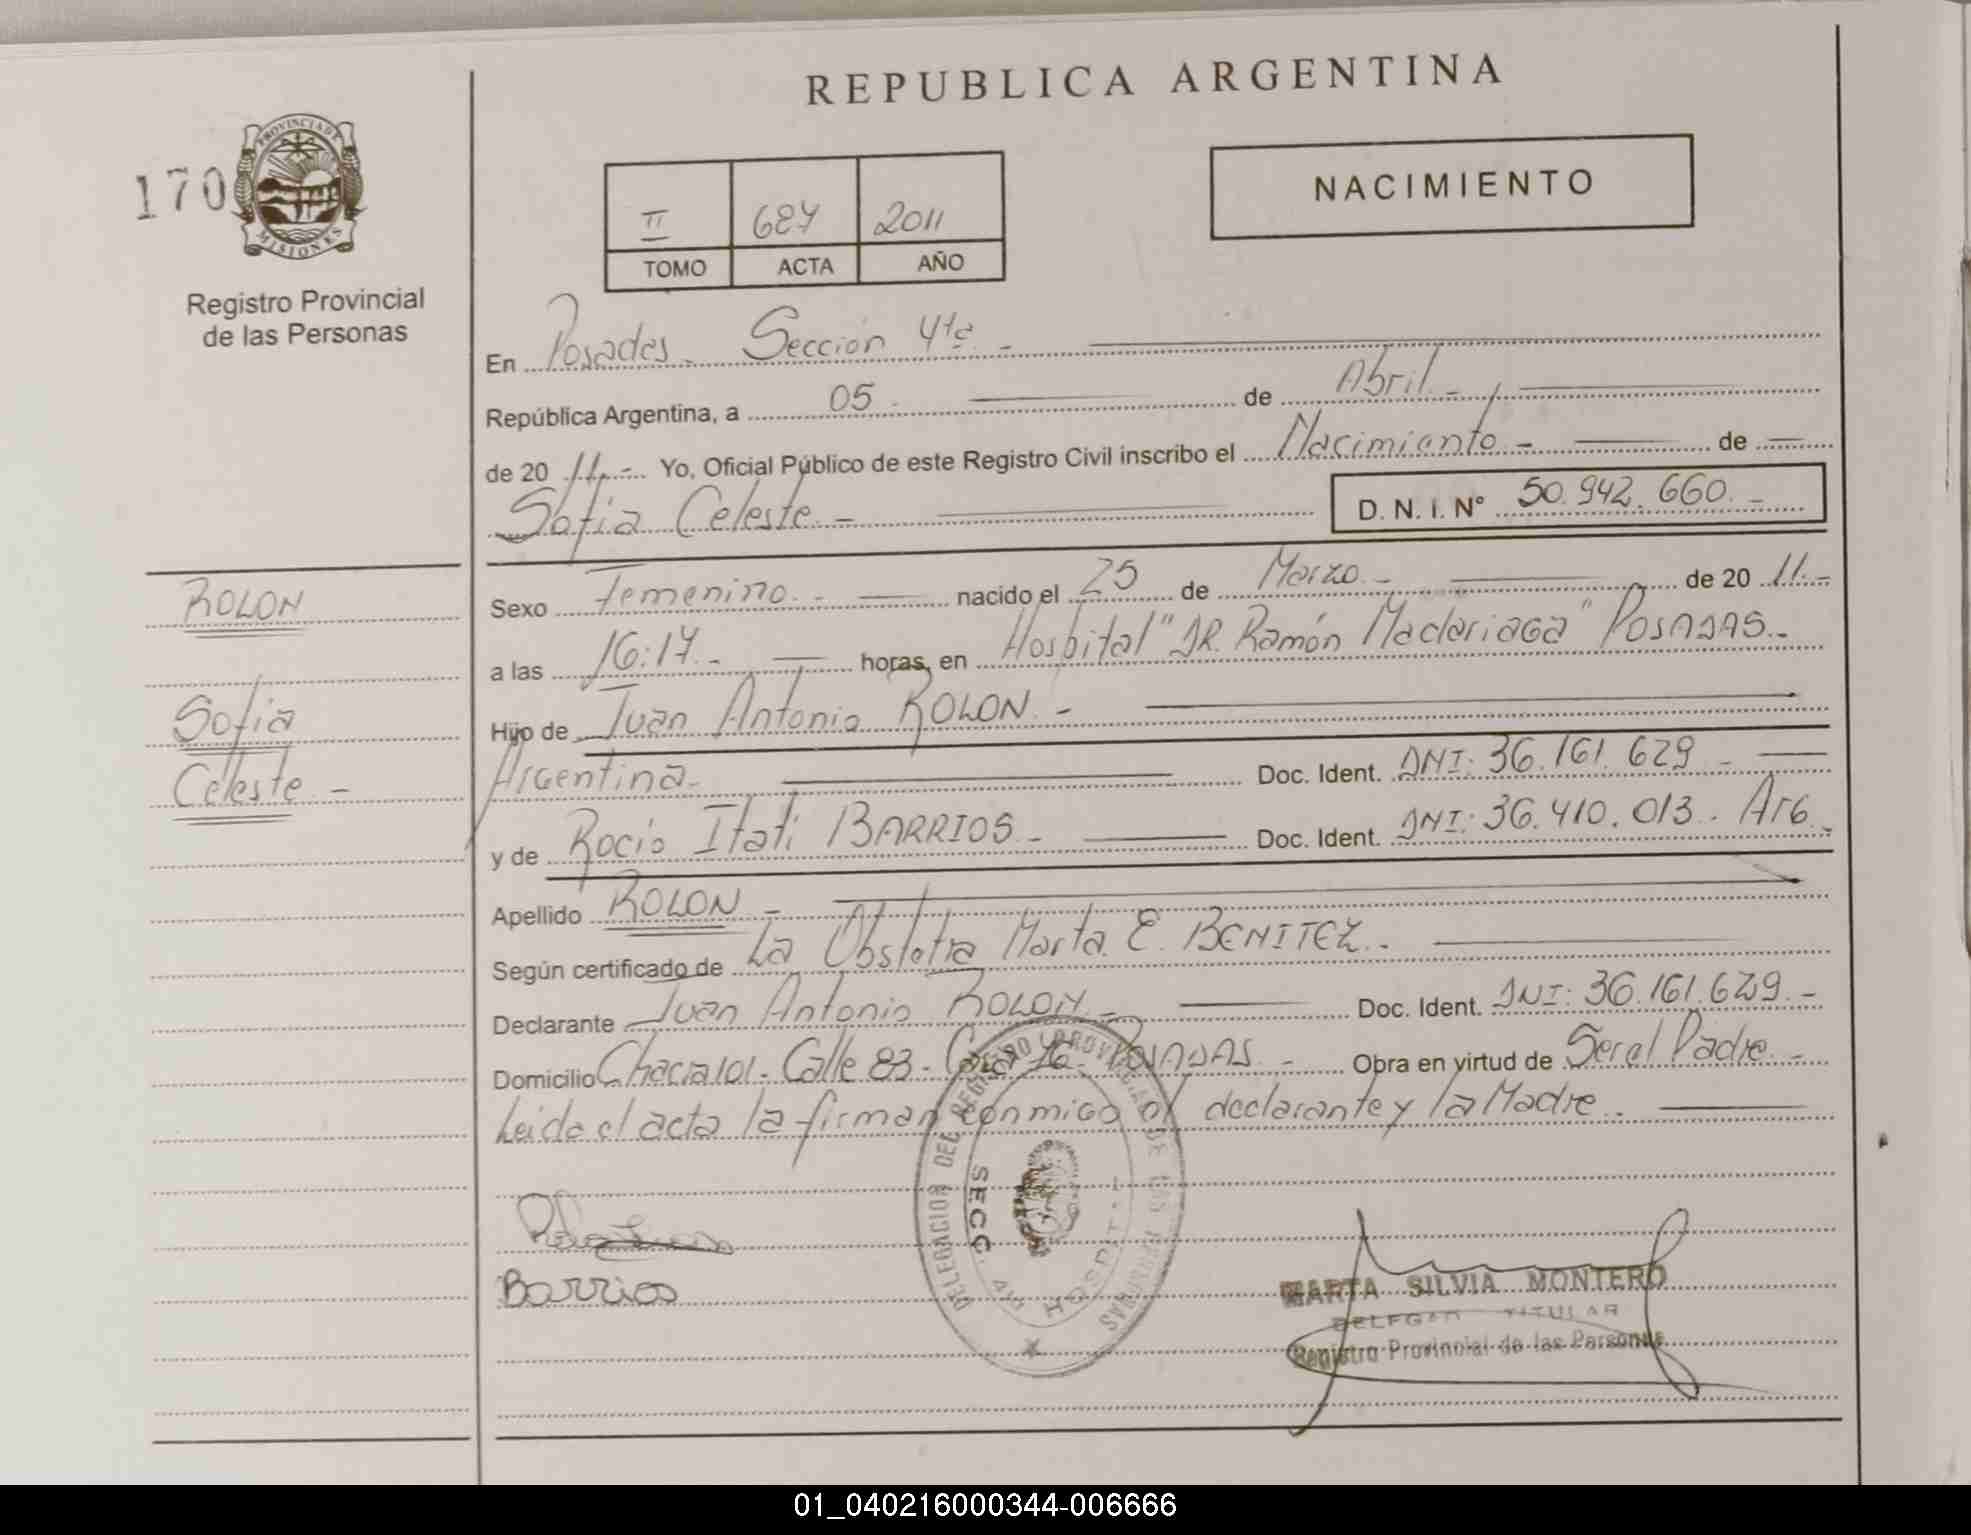 REPUBLICA ARGENTINA
170
PROVINCIA DE
MISIONES
Registro Provincial
de las Personas
II 687 2011
TOMO ACTA AÑO
NACIMIENTO
En Posadas. Sección 4ta. -
República Argentina, a 05 - de Abril. -
de 20 11.- Yo, Oficial Público de este Registro Civil inscribo el Nacimiento - de
Sofia Celeste. - D. N. I. N° 50.942.660. -
ROLON
Sofia
Celeste. -
Sexo Femenino. - nacido el 25 de Marzo. - de 20 11.-
a las 16:17.- horas, en Hospital "DR. Ramón Madariaga" POSADAS.-
Hijo de Juan Antonio ROLON. -
Argentina.- Doc. Ident. DNI: 36.161.629 -
y de Rocio Itati BARRIOS. - Doc. Ident. DNI: 36.410.013. Arg.
Apellido ROLON -
Según certificado de La Obstetra Marta E. BENITEZ. -
Declarante Juan Antonio ROLON. - Doc. Ident. DNI: 36.161.629. -
Domicilio Chacra 101. Calle 83 - Casa 16. POSADAS. - Obra en virtud de Ser el Padre. -
Leida el acta la firman conmigo el declarante y la Madre. -
DELEGACION DEL REGISTRO PROVINCIAL DE LAS PERSONAS
SECC. 4ta HOSPITAL
Barrios
MARTA SILVIA MONTERO
DELEGADA TITULAR
Registro Provincial de las Personas
01_040216000344-006666